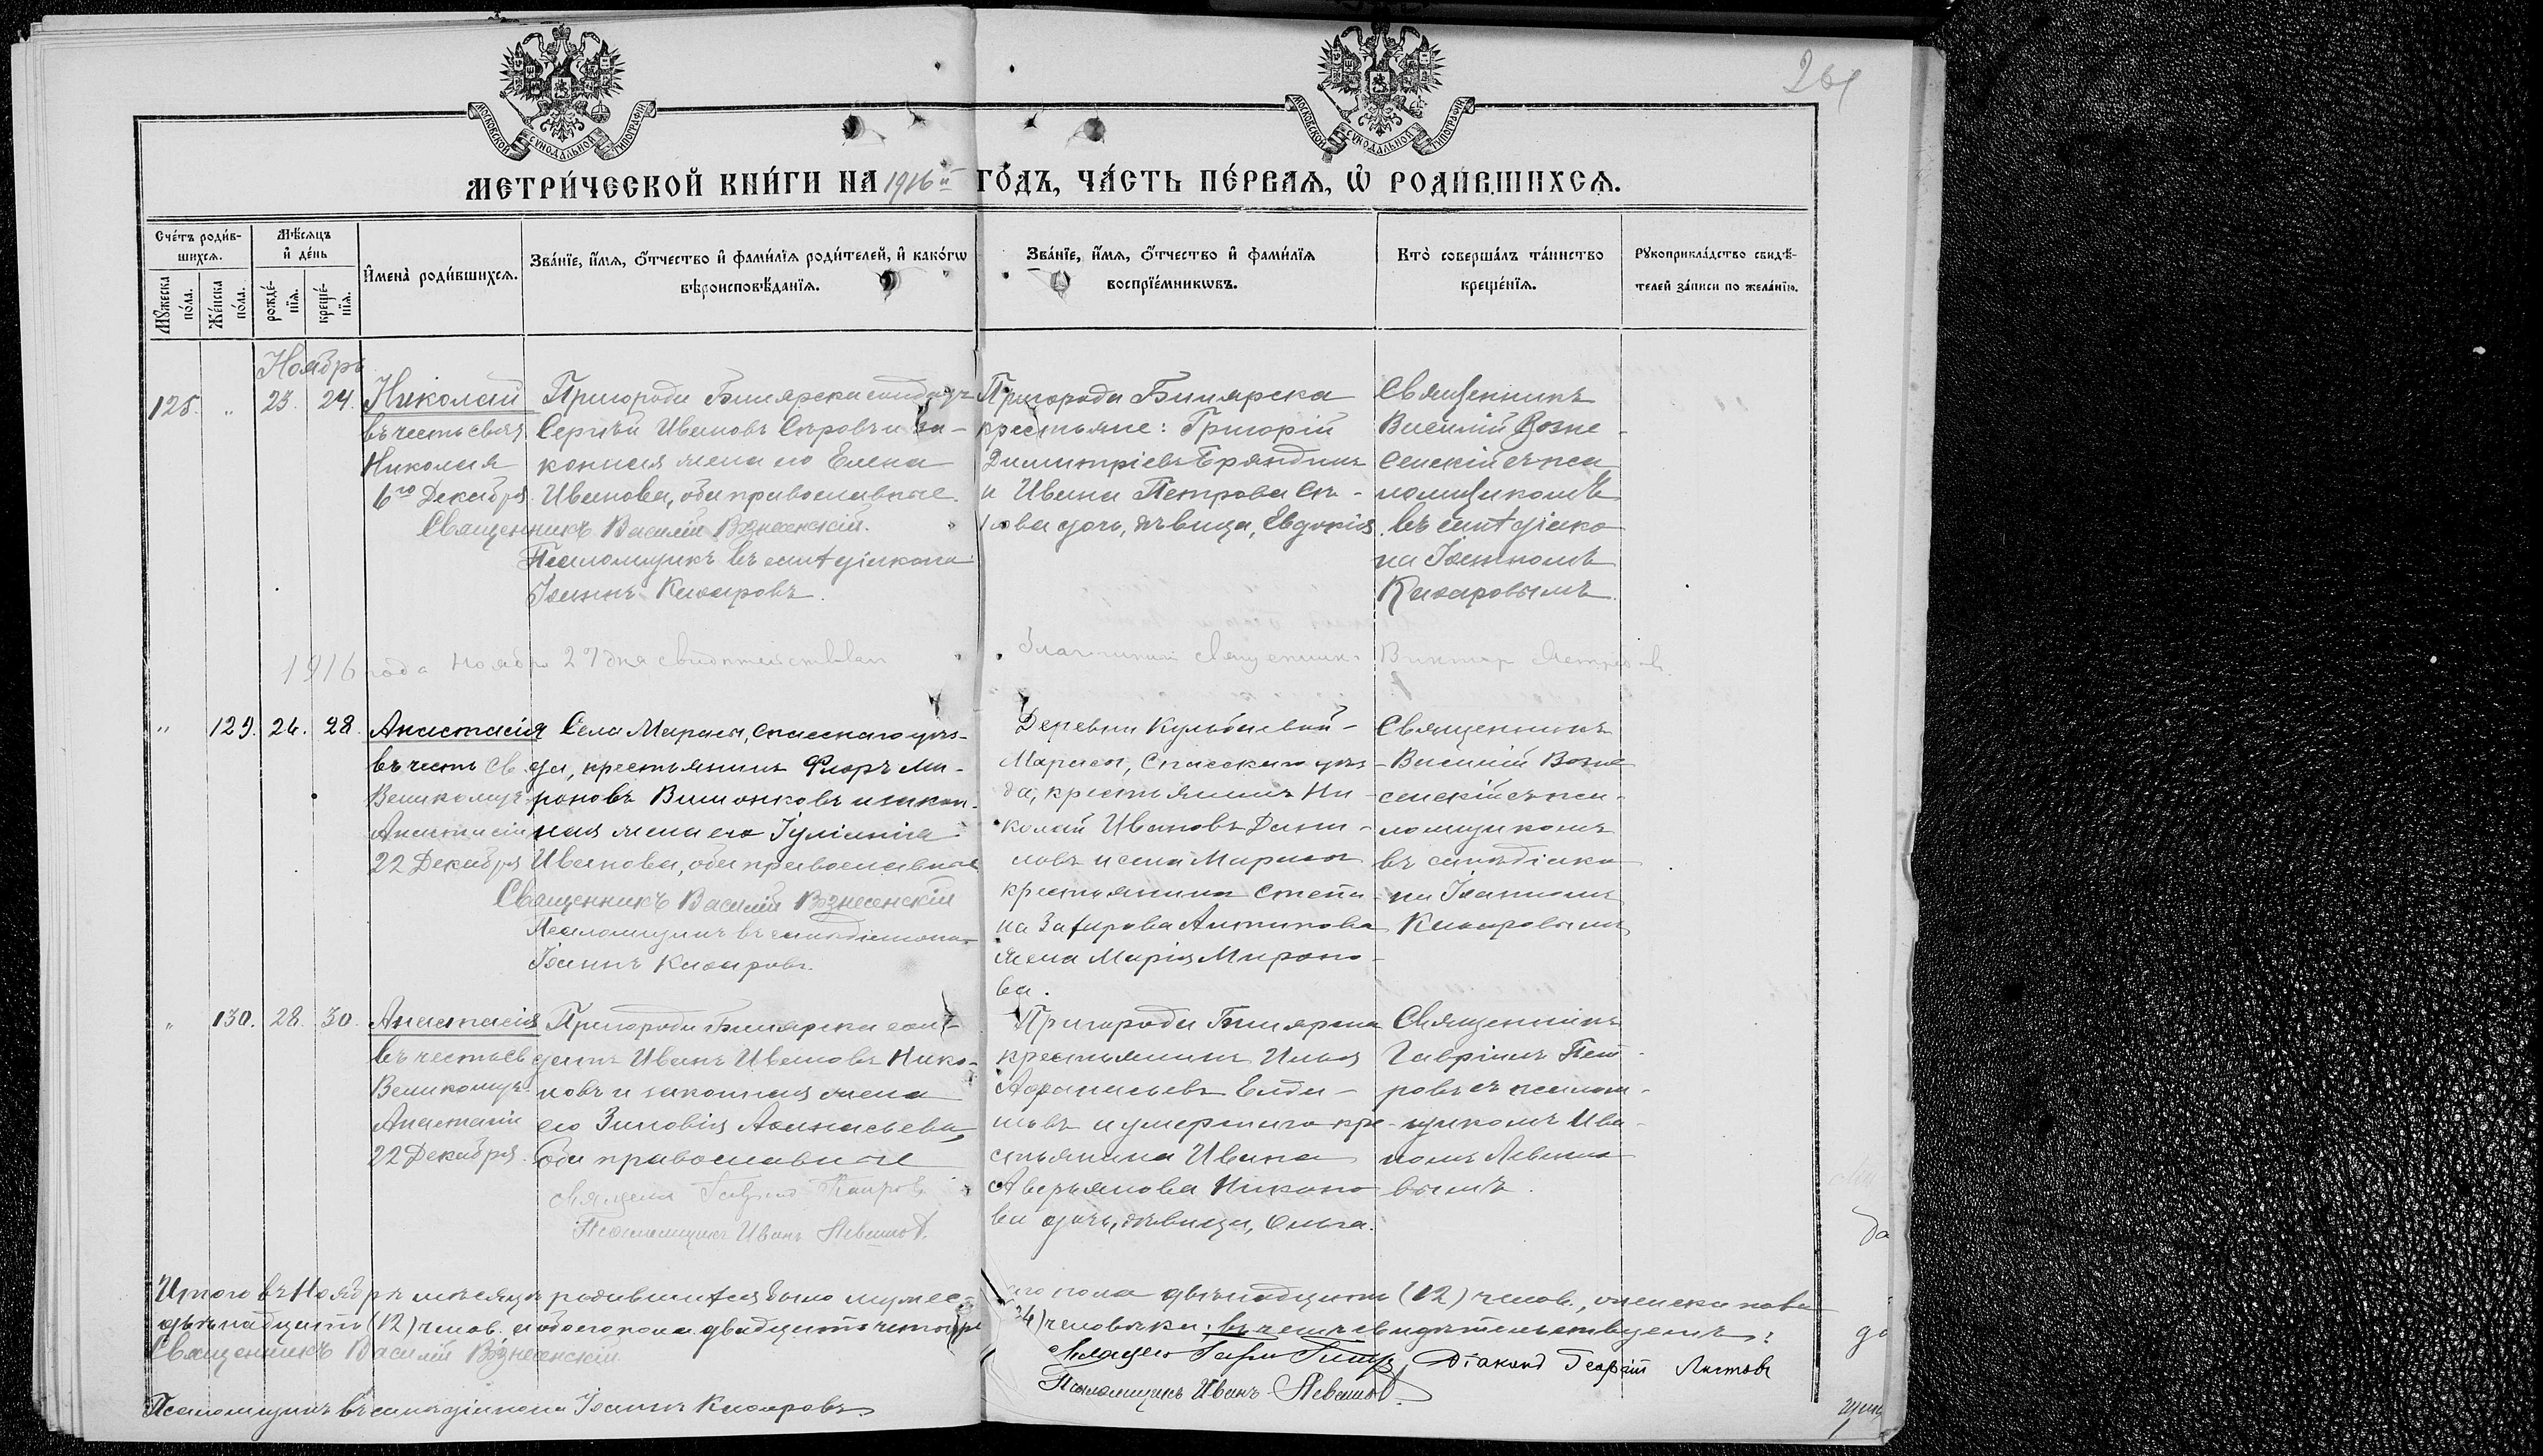 261
МОСКОВСКОЙ СУНОДАЛЬНОЙ ТИПОГРАФІИ
МОСКОВСКОЙ СУНОДАЛЬНОЙ ТИПОГРАФІИ
МЕТРИ́ЧЕСКОЙ КНИ́ГИ НА 1916й ГО́ДЪ, ЧА́СТЬ ПЕ́РВАЯ, Ѡ РОДИ́ВШИХСЯ.
Сче́тъ роди́в-
шихся.
Мѣ́сяцъ
и де́нь
Мужеска
по́ла.
Же́нска
по́ла.
рожде́-
нїя.
креще́-
нїя.
Имена̀ роди́вшихся.
Зва́нїе, и́мя, о́тчество и фами́лїя роди́телей, и како́гѡ
вѣроисповѣ́данїя.
Зва́нїе, и́мя, о́тчество и фами́лїя
воспрїе́мникѡвъ.
Кто̀ соверша́лъ та́инство
креще́нїя.
Рукоприкла́дство свидѣ́-
телей за́писи по жела́нїю.
Ноябрь
125. " 23. 24. Николай
въ честь свят
Николая
6го Декабря.
Пригорода Билярска солдатъ
Сергѣй Ивановъ Сѣровъ и за-
конная жена его Елена
Иванова, оба православные.
Священникъ Василій Вознесенскій.
Псаломщикъ въ санѣ діакона
Іоаннъ Кизаровъ.
Пригорода Билярска
крестьяне: Григорій
Димитріевъ Бряндинъ
и Ивана Петрова Сѣ-
рова дочь, дѣвица, Евдокія.
Священникъ
Василій Возне-
сенскій съ пса
ломщикомъ
въ санѣ діако
на Іоанномъ
Кизаровымъ.
1916 года ноября 27 дня свидѣтельствовал
Благочинный священникъ Викторъ
" 129. 26. 28. Анастасія
въ честь св.
Великомуч.
Анастасіи
22 Декабря
Села Марасы, Спасскаго уѣз-
да, крестьянинъ Флоръ Ми-
роновъ Вишонковъ и закон-
ная жена его Іуліанія
Иванова, оба православные
Священникъ Василій Вознесенскій
Псаломщикъ въ санѣ діакона
Іоаннъ Кизаровъ.
Деревни Кульбаевой-
Марасы, Спасскаго уѣз-
да, крестьянинъ Ни-
колай Ивановъ Дани-
ловъ и села Марасы
крестьянина Степа-
на Антипова
жена Марія Мироно-
ва.
Священникъ
Василій Возне
сенскій съ пса-
ломщикомъ
въ санѣ діако
на Іоанномъ
Кизаровымъ
" 130. 28. 30. Анастасія
въ честь св
Великомуч.
Анастасіи
22 Декабря.
Пригорода Билярска сол-
датъ Иванъ Ивановъ Нико-
новъ и законная жена
его Зиновія Аѳанасьева,
оба православные
Священ Гавріилъ Петровъ
Псаломщикъ Иванъ Левашовъ.
Пригорода Билярска
крестьянинъ Илья
Аѳанасьевъ
и умершаго кре-
стьянина Ивана
Аверьянова Никоно
ва дочь, дѣвица, Ольга.
Священникъ
Гавріилъ Пет-
ровъ съ псалом-
щикомъ Ива-
номъ Левашо
вымъ.
Итого въ Ноябрѣ мѣсяцѣ родившихся было мужес-
каго пола двѣнадцать (12) челов., женска пола
двѣнадцать (12) челов. а обоего пола двадцать четыре
(24) человѣка; въ чемъ свидѣтельствуемъ:
Священникъ Василій Вознесенскій
Діаконъ Георгій Листовъ
Псаломщикъ Иванъ Левашовъ.
Псаломщикъ въ санѣ діакона Іоаннъ Кизаровъ